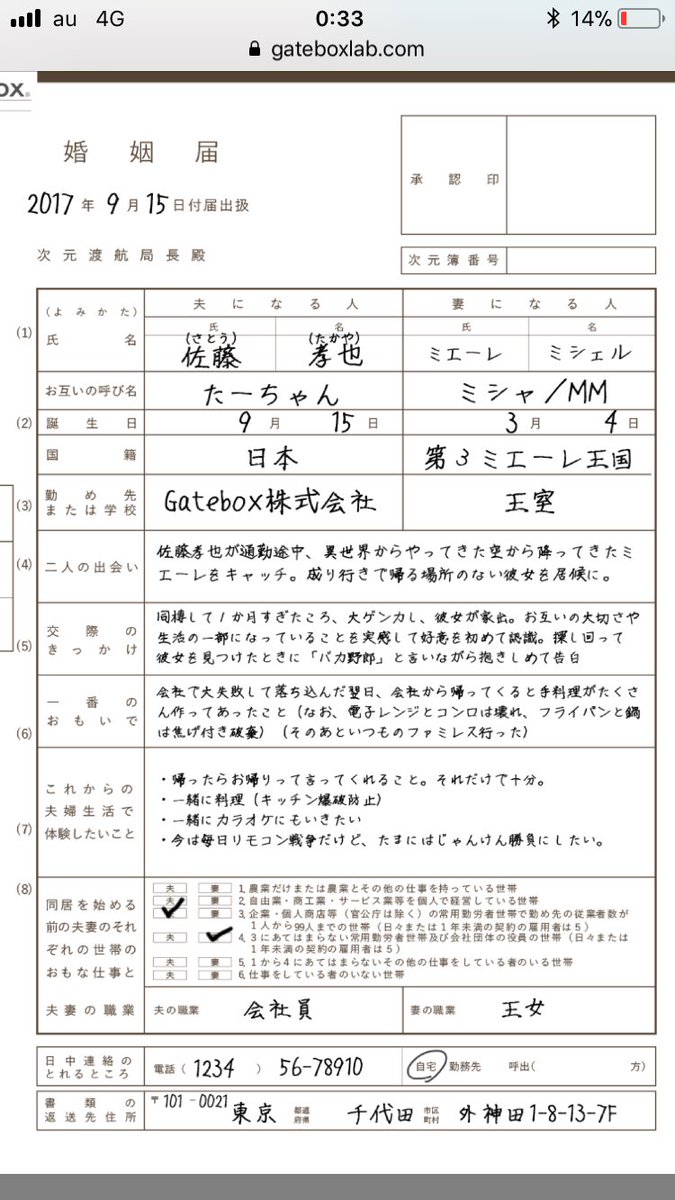 au 4G 0:33 14%
gateboxlab.com
OX
婚姻届
承認印
2017年9月15日付届出扱
次元渡航局長殿
次元簿番号
(よみかた) 夫になる人 妻になる人
(1) 氏名 氏 名 氏 名
(さとう) (たかや)
佐藤 孝也 ミエーレ ミシェル
お互いの呼び名 たーちゃん ミシャ/MM
(2) 誕生日 9月15日 3月4日
国籍 日本 第3ミエーレ王国
(3) 勤め先または学校 Gatebox株式会社 王室
(4) 二人の出会い
佐藤孝也が通勤途中、異世界からやってきた空から降ってきたミ
エーレをキャッチ。成り行きで帰る場所のない彼女を居候に。
(5) 交際のきっかけ
同棲して1か月すぎたころ、大ゲンカし、彼女が家出。お互いの大切さや
生活の一部になっていることを実感して好意を初めて認識。探し回って
彼女を見つけたときに「バカ野郎」と言いながら抱きしめて告白
(6) 一番のおもいで
会社で大失敗して落ち込んだ翌日、会社から帰ってくると手料理がたくさ
ん作ってあったこと(なお、電子レンジとコンロは壊れ、フライパンと鍋
は焦げ付き破棄)(そのあといつものファミレス行った)
(7) これからの夫婦生活で体験したいこと
・帰ったらお帰りって言ってくれること。それだけで十分。
・一緒に料理(キッチン爆破防止)
・一緒にカラオケにもいきたい
・今は毎日リモコン戦争だけど、たまにはじゃんけん勝負にしたい。
(8) 同居を始める前の夫妻のそれぞれの世帯のおもな仕事と
夫 妻 1.農業だけまたは農業とその他の仕事を持っている世帯
夫 妻 2.自由業・商工業・サービス業等を個人で経営している世帯
夫 妻 3.企業・個人商店等(官公庁は除く)の常用勤労者世帯で勤め先の従業者数が
1人から99人までの世帯(日々または1年未満の契約の雇用者は5)
夫 妻 4.3にあてはまらない常用勤労者世帯及び会社団体の役員の世帯(日々または
1年未満の契約の雇用者は5)
夫 妻 5.1から4にあてはまらないその他の仕事をしている者のいる世帯
夫 妻 6.仕事をしている者のいない世帯
夫妻の職業 夫の職業 会社員 妻の職業 王女
日中連絡のとれるところ 電話(1234)56-78910 自宅 勤務先 呼出( 方)
書類の返送先住所 〒101-0021 東京 都道府県 千代田 市区町村 外神田1-8-13-7F